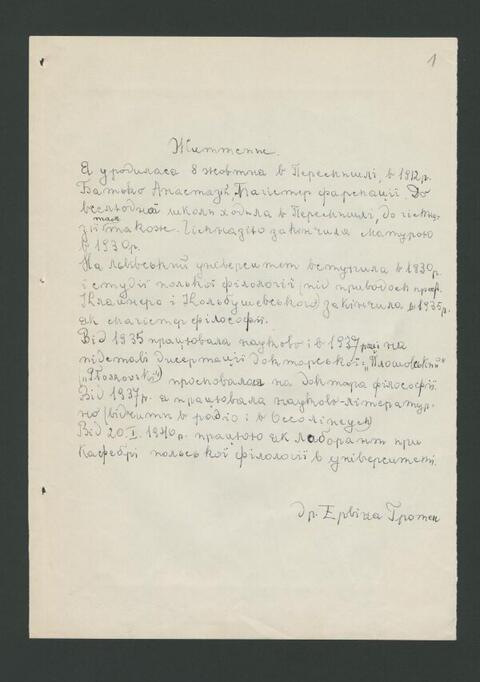 1
Життєпис.
Я уродилася 8 жовтня в Перемишлі, в 1912 р.
Батько Анастазій Магістер фармації. До
вселюдної школи ходила в Перемишлі, до гімна-
зії також. Гімназію закінчила матурою
в 1930 р.
На львівський університет вступила в 1930 р.
і студії польської філології під проводом проф.
Кляйнера і Кольбушевського закінчила в 1935 р.
як магістер філософії.
Від 1935 працювала науково і в 1937 році на
підставі дисертації докторської: „Плошовський"
(„Płoszowski") промовалася на доктора філософії.
Від 1937 р. я працювала науково-літератур-
но (відчити в радіо і в Оссолінеум)
Від 20.I.1940 р. працюю як лаборант при
Кафедрі польської філології в університеті.
др. Ервіна